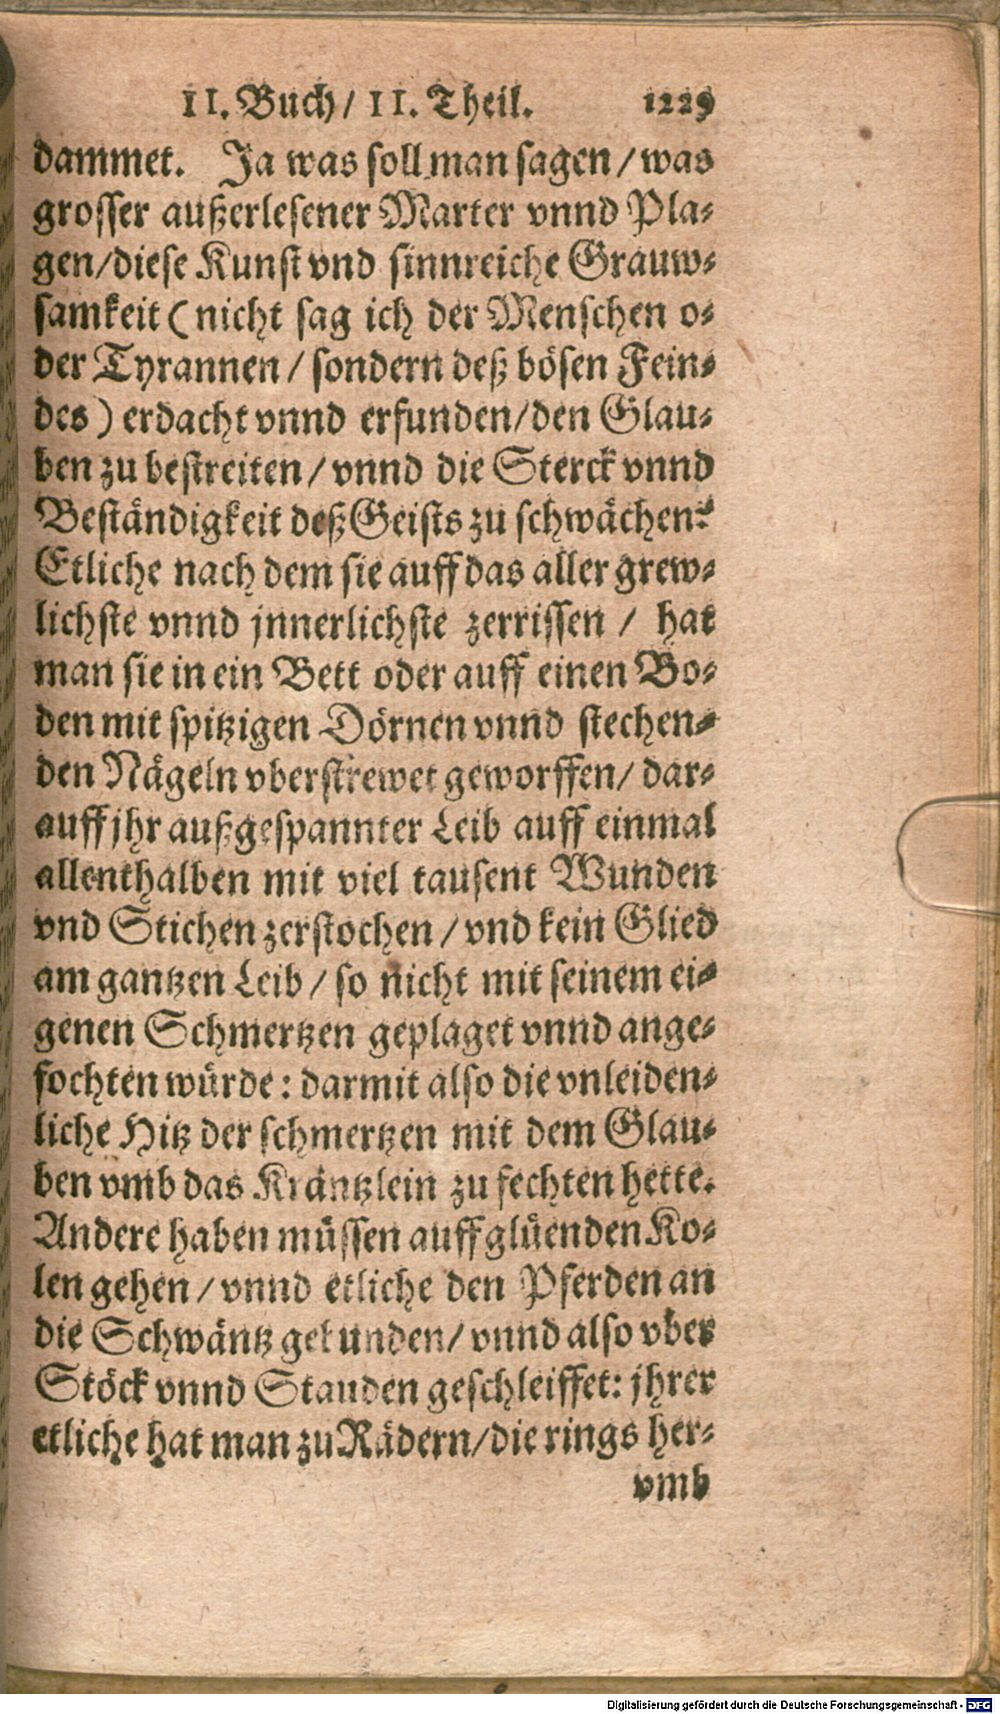 II. Buch/ II. Theil. 1229
dammet. Ja was soll man sagen / was
grosser außerlesener Marter vnnd Pla-
gen/diese Kunst vnd sinnreiche Grauw-
samkeit (nicht sag ich der Menschen o-
der Tyrannen / sondern deß bösen Fein-
des) erdacht vnnd erfunden/den Glau-
ben zu bestreiten / vnnd die Sterck vnnd
Beständigkeit deß Geists zu schwächen?
Etliche nach dem sie auff das aller grew-
lichste vnnd jnnerlichste zerrissen / hat
man sie in ein Bett oder auff einen Bo-
den mit spitzigen Dörnen vnnd stechen-
den Nägeln vberstrewet geworffen/ dar-
auff jhr außgespannter Leib auff einmal
allenthalben mit viel tausent Wunden
vnd Stichen zerstochen / vnd kein Glied
am gantzen Leib / so nicht mit seinem ei-
genen Schmertzen geplaget vnnd ange-
fochten würde: darmit also die vnleiden-
liche Hitz der schmertzen mit dem Glau-
ben vmb das Kräntzlein zu fechten hette.
Andere haben müssen auff glüenden Ko-
len gehen / vnnd etliche den Pferden an
die Schwäntz gebunden/ vnnd also vber
Stöck vnnd Stauden geschleiffet: jhrer
etliche hat man zu Rädern/die rings her-
vmb
Digitalisierung gefördert durch die Deutsche Forschungsgemeinschaft - DFG